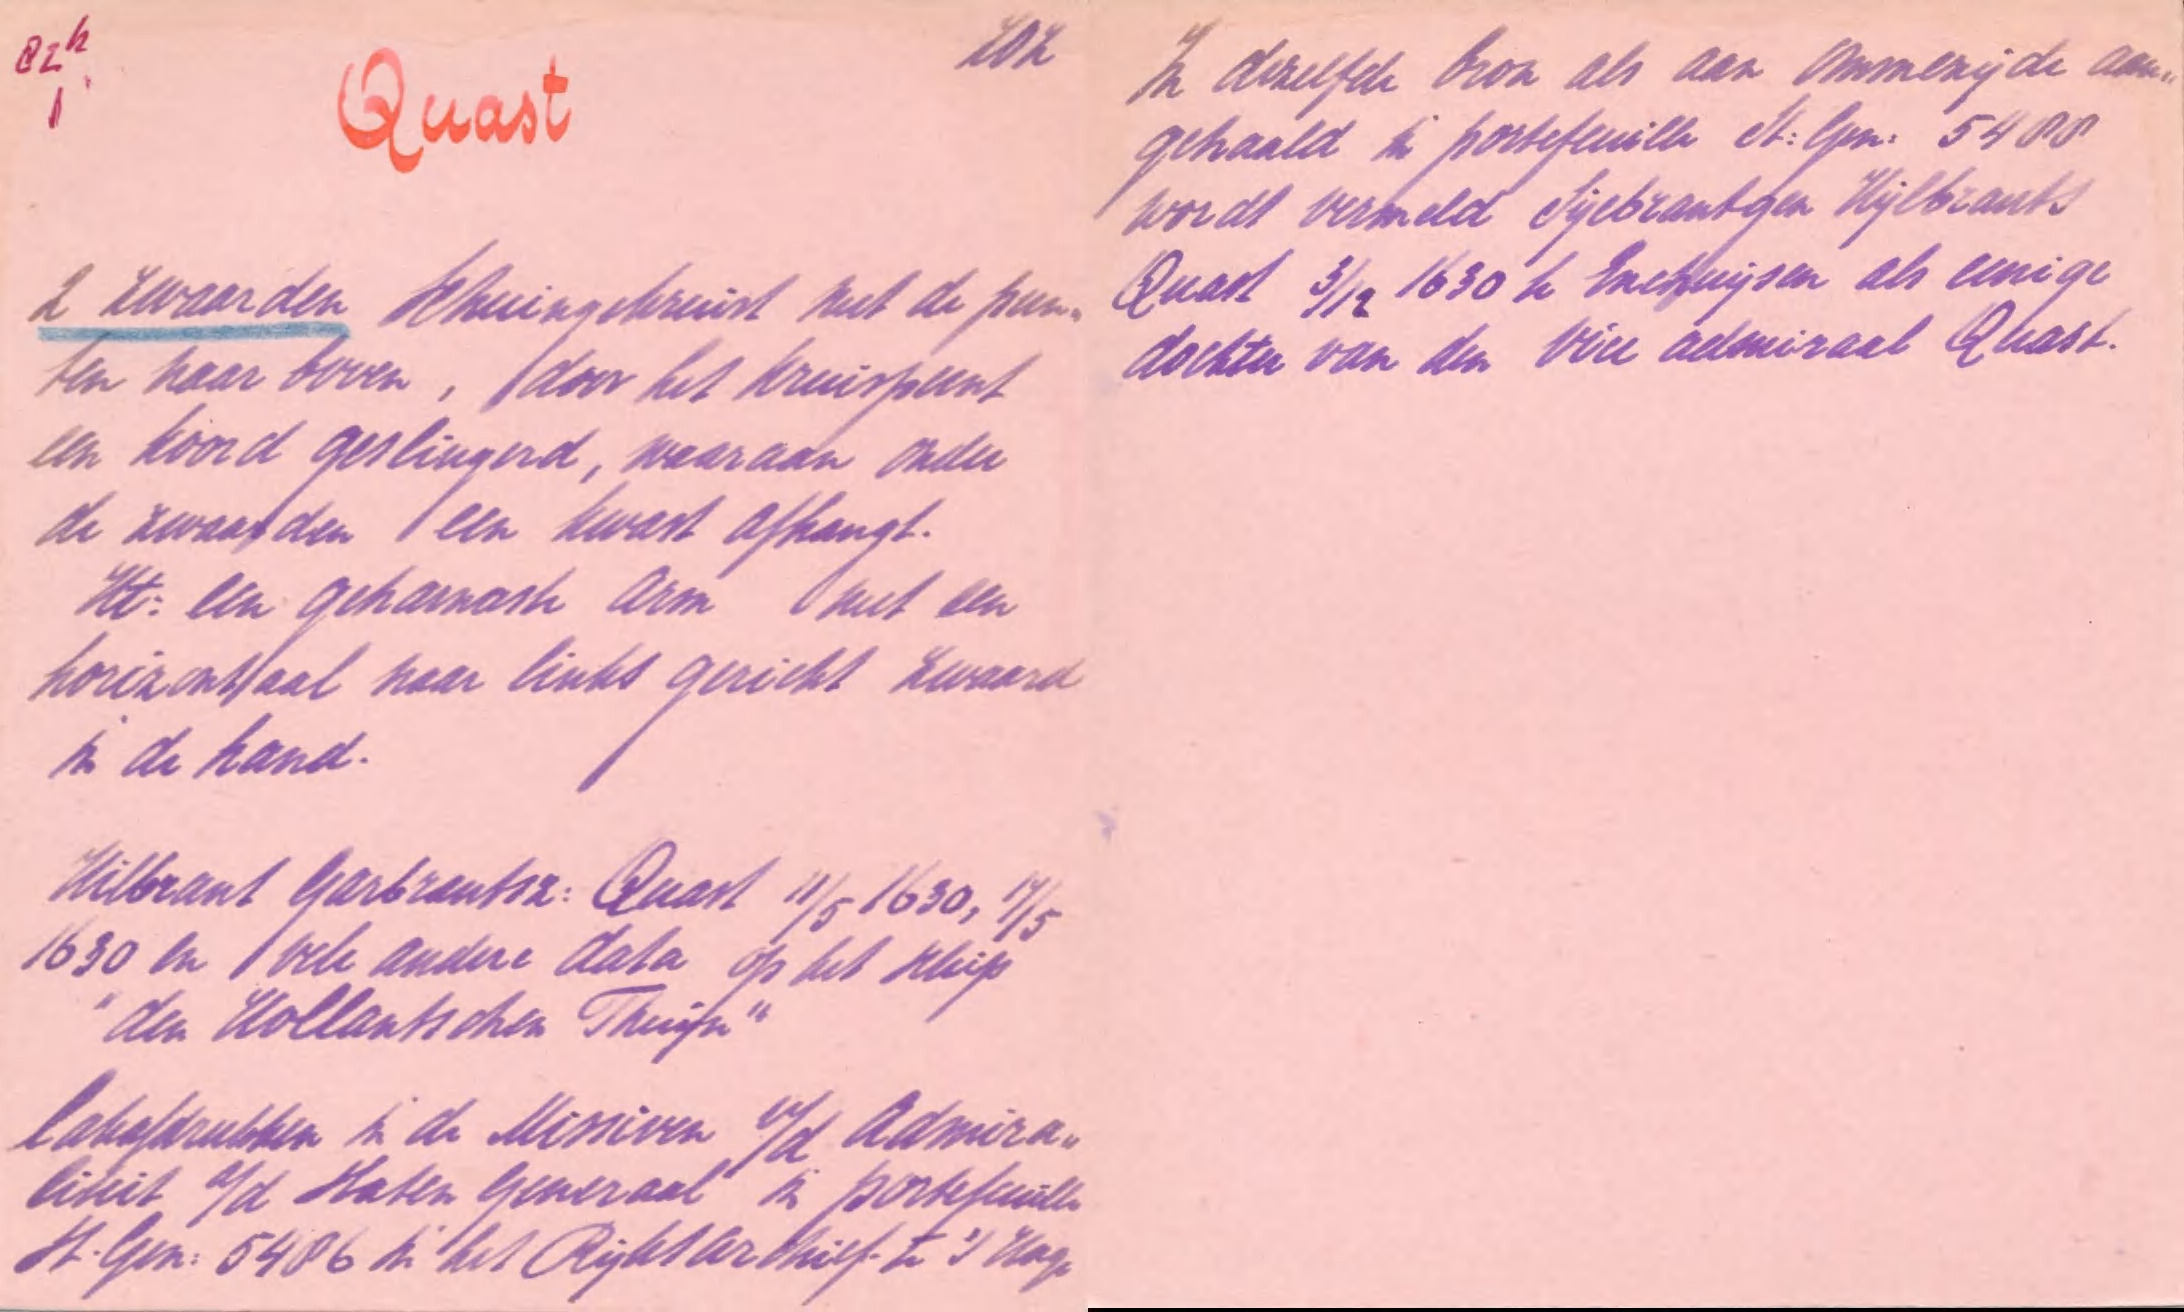 Quast
2 zwaarden schuingekruist met de pun„
ten naar boven, door het kruispunt
een koord geslingerd, waaraan onder
de zwaarden een kwast afhangt.
Ht: een geharnaste arm met een
horizontaal naar links gericht zwaard
in de hand.
Hilbrant Garbrantsz: Quast 11/5 1630, 17/5
1630 en vele andere data op het schip
"den Hollantschen Thuijn"
Lakafdrukken in de Missiven v/d Admira„
liteit a/d Staten Generaal in portefeuille
St. Gen: 5486 in het Rijksarchief te 's Hage
In dezelfde bron als aan ommezijde aan„
gehaald in portefeuille St: Gen: 5488
wordt vermeld Sijebrantgen Hijlbrants
Quast 3/12 1630 te Enchuijsen als eenige
dochter van den Vice admiraal Quast.